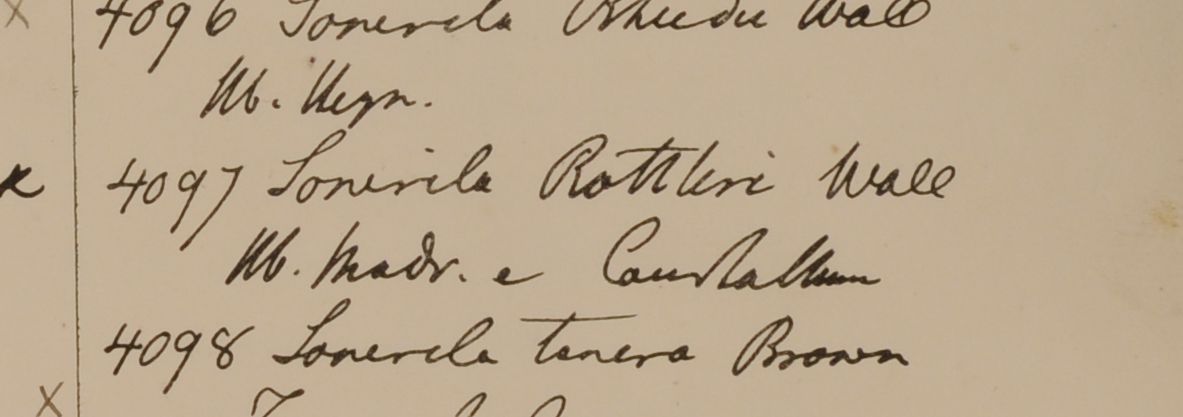 4096 Sonerila Rheedii Wall
Hb. Heyn.
4097 Sonerila Rottleri Wall
Hb. Madr. e
4098 Sonerila tenera Brown